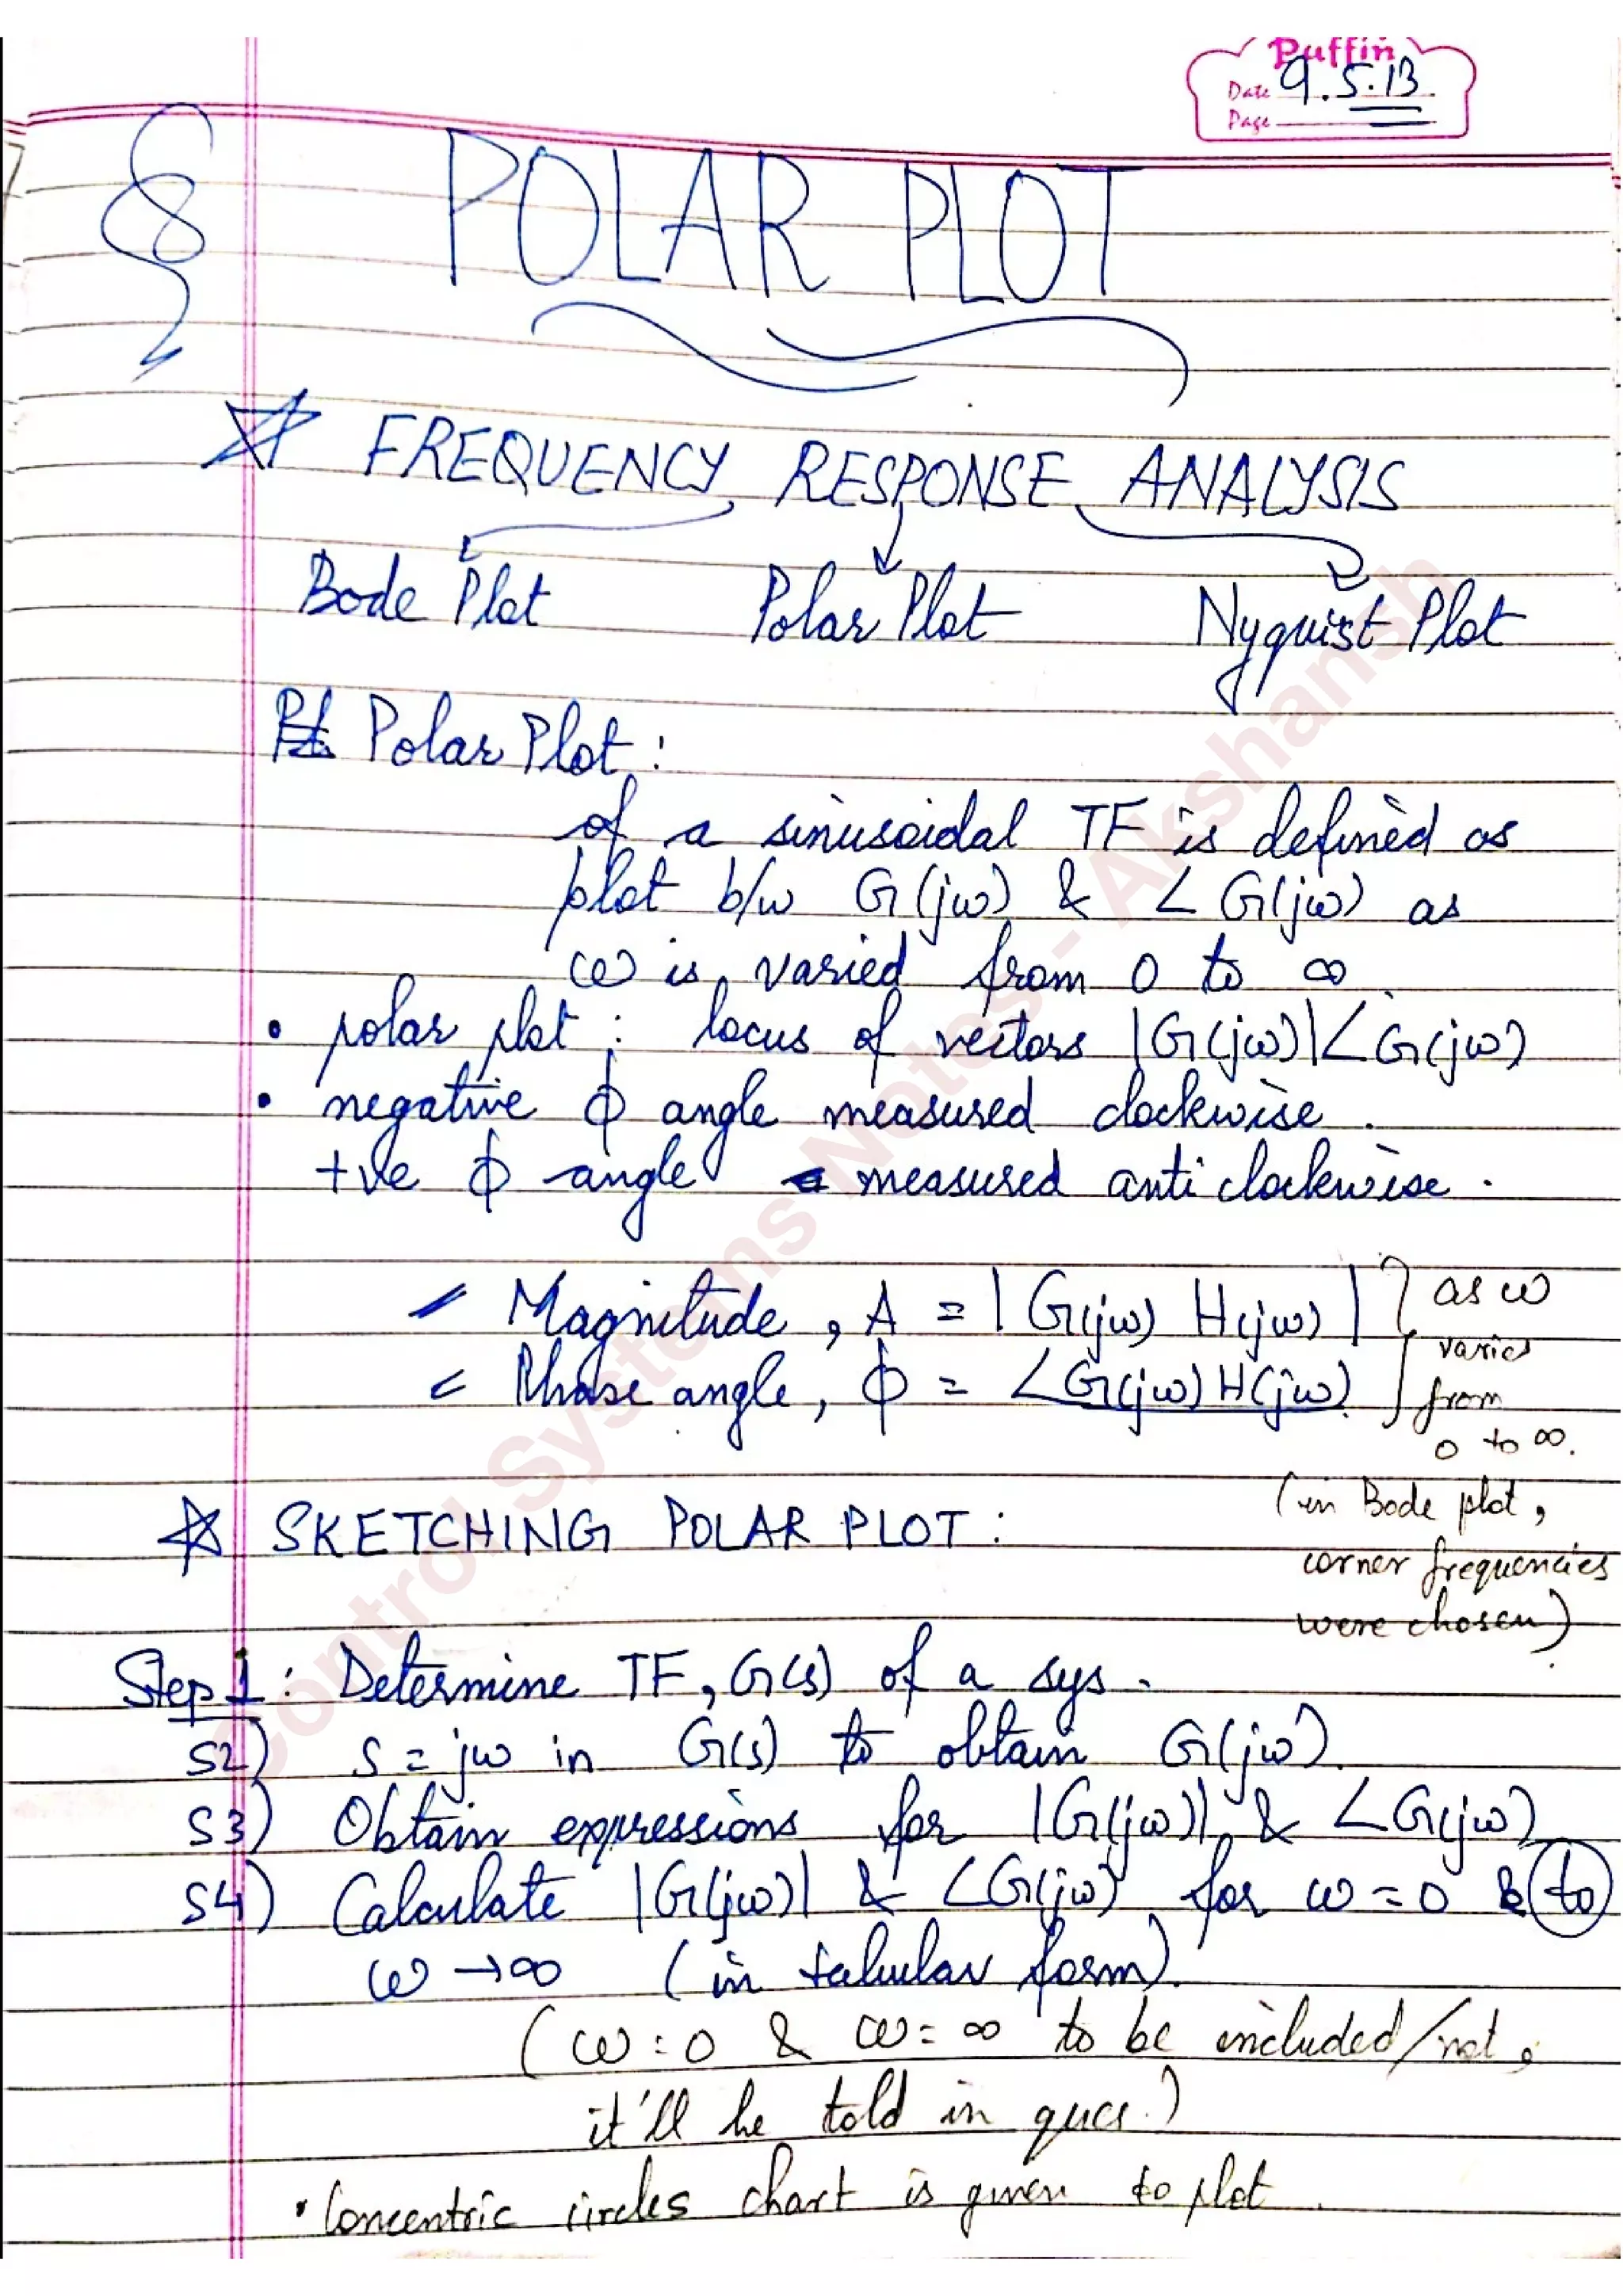 Puffin
Date 9.5.13
Page
POLAR PLOT
FREQUENCY RESPONSE ANALYSIS
Bode Plot Polar Plot Nyquist Plot
Polar Plot :
of a sinusoidal TF is defined as
plot b/w G(jω) & ∠G(jω) as
ω is varied from 0 to ∞.
• polar plot : locus of vectors |G(jω)|∠G(jω)
• negative ϕ angle measured clockwise.
+ve ϕ angle measured anti clockwise.
Magnitude, A = |G(jω) H(jω)| } as ω
Phase angle, ϕ = ∠G(jω) H(jω) varies
from
0 to ∞.
(in Bode plot,
☆ SKETCHING POLAR PLOT :
corner frequencies
were chosen)
Step 1 : Determine TF, G(s) of a sys.
S2) s = jω in G(s) to obtain G(jω).
S3) Obtain expressions for |G(jω)| & ∠G(jω)
S4) Calculate |G(jω)| & ∠G(jω) for ω = 0 to
ω → ∞ (in tabular form).
(ω = 0 & ω = ∞ to be included/not,
it'll be told in ques.)
• Concentric circles chart is given to plot.
Control Systems Notes - Akshansh